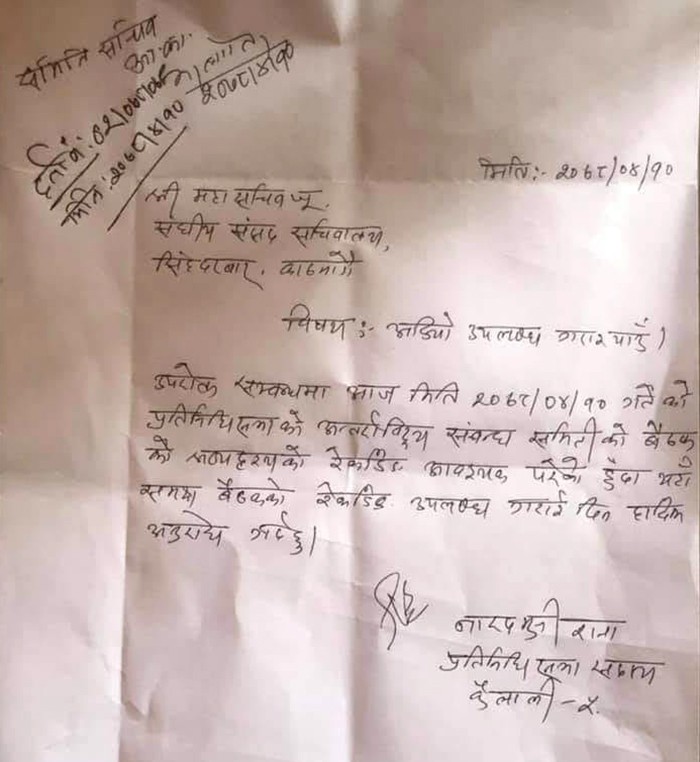 समिति सचिव
आ.का.
दर्ता नं: ०२/०७८
मिति: २०७८/४/१० २०७८/४/१०
मिति:- २०७८/०४/१०
श्री महासचिव ज्यू.
संघीय संसद सचिवालय,
सिंहदरबार, काठमाडौं
विषय :- अडियो उपलब्ध गराई पाउँ।
उपरोक्त सम्बन्धमा आज मिति २०७८/०४/१० गते को
प्रतिनिधिसभाको अन्तर्राष्ट्रिय संबन्ध समितीको बैठक
को श्रव्यदृश्यको रेकर्डिङ आवश्यक परेको हुँदा
बैठकको रेकर्डिङ उपलब्ध गराई दिन हार्दिक
अनुरोध गर्दछु।
नारदमुनी राना
प्रतिनिधिसभा सदस्य
कैलाली -५.